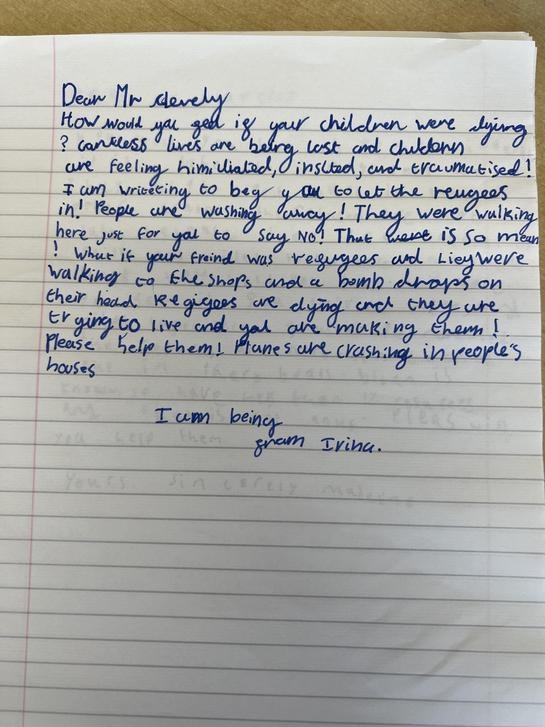 Dear Mr clevely
How would you geel ig your children were dying
? careless lives are being lost and children
are feeling himiliated, inslted, and traumatised!
I am writeting to beg you to let the reugees
in! People are washing away! They were walking
here just for you to say NO! That were is so mean
! What if your freind was regugees and were
walking to the shops and a bomb drops on
their head. Regigees are dying and they are
trying to live and you are making them!
Please help them! Planes are crashing in people's
houses
I am being
gram Irina.
know
you help them
Yours sincerely